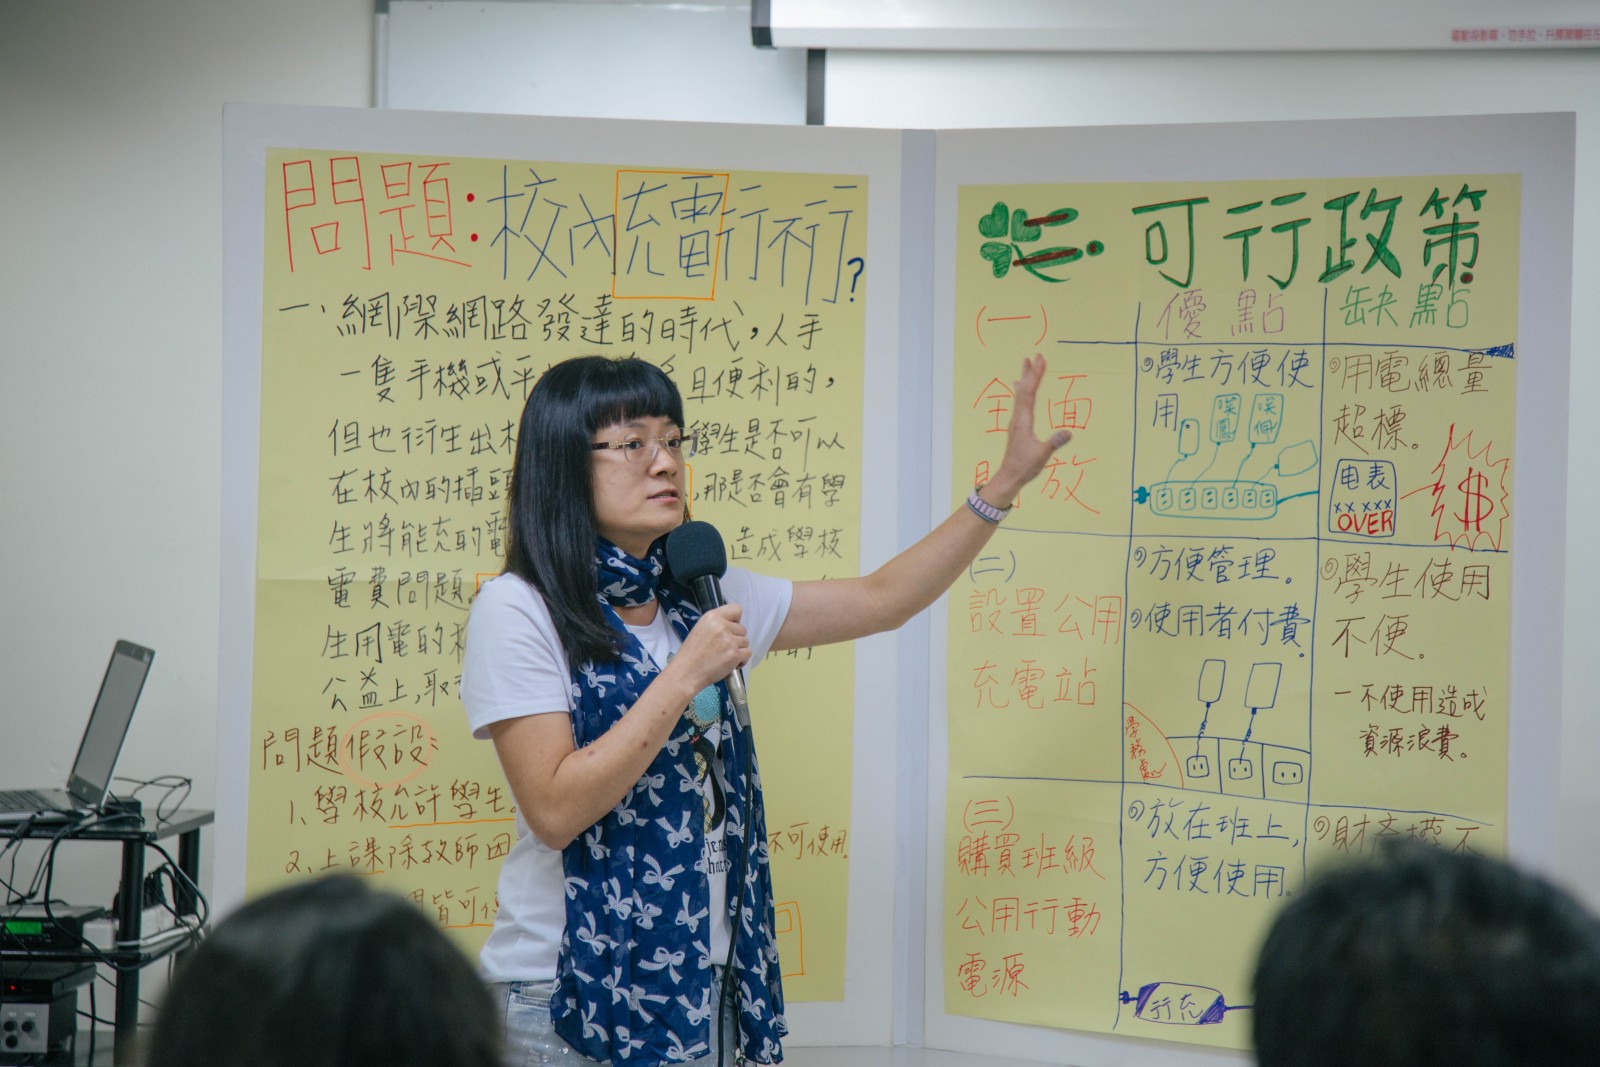 問題:校內充電行不行?
一、網際網路發達的時代,人手
一隻手機或平 且便利的,
但也衍生出 學生是否可以
在校內的插頭 ,那是否會有學
生將能充的電 造成學校
電費問題。
生用電的
公益上,取
問題假設:
1、學校允許學生。
2、上課除教師因 不可使用。
皆可使
可行政策
優點
缺點
(一)
全面
開放
學生方便使
用
用電總量
超標。
电表
XX XXXX
OVER
$
(二)
設置公用
充電站
方便管理。
使用者付費。
學務處
學生使用
不便。
一不使用造成
資源浪費。
(三)
購買班級
公用行動
電源
放在班上,
方便使用。
行充
財產權不